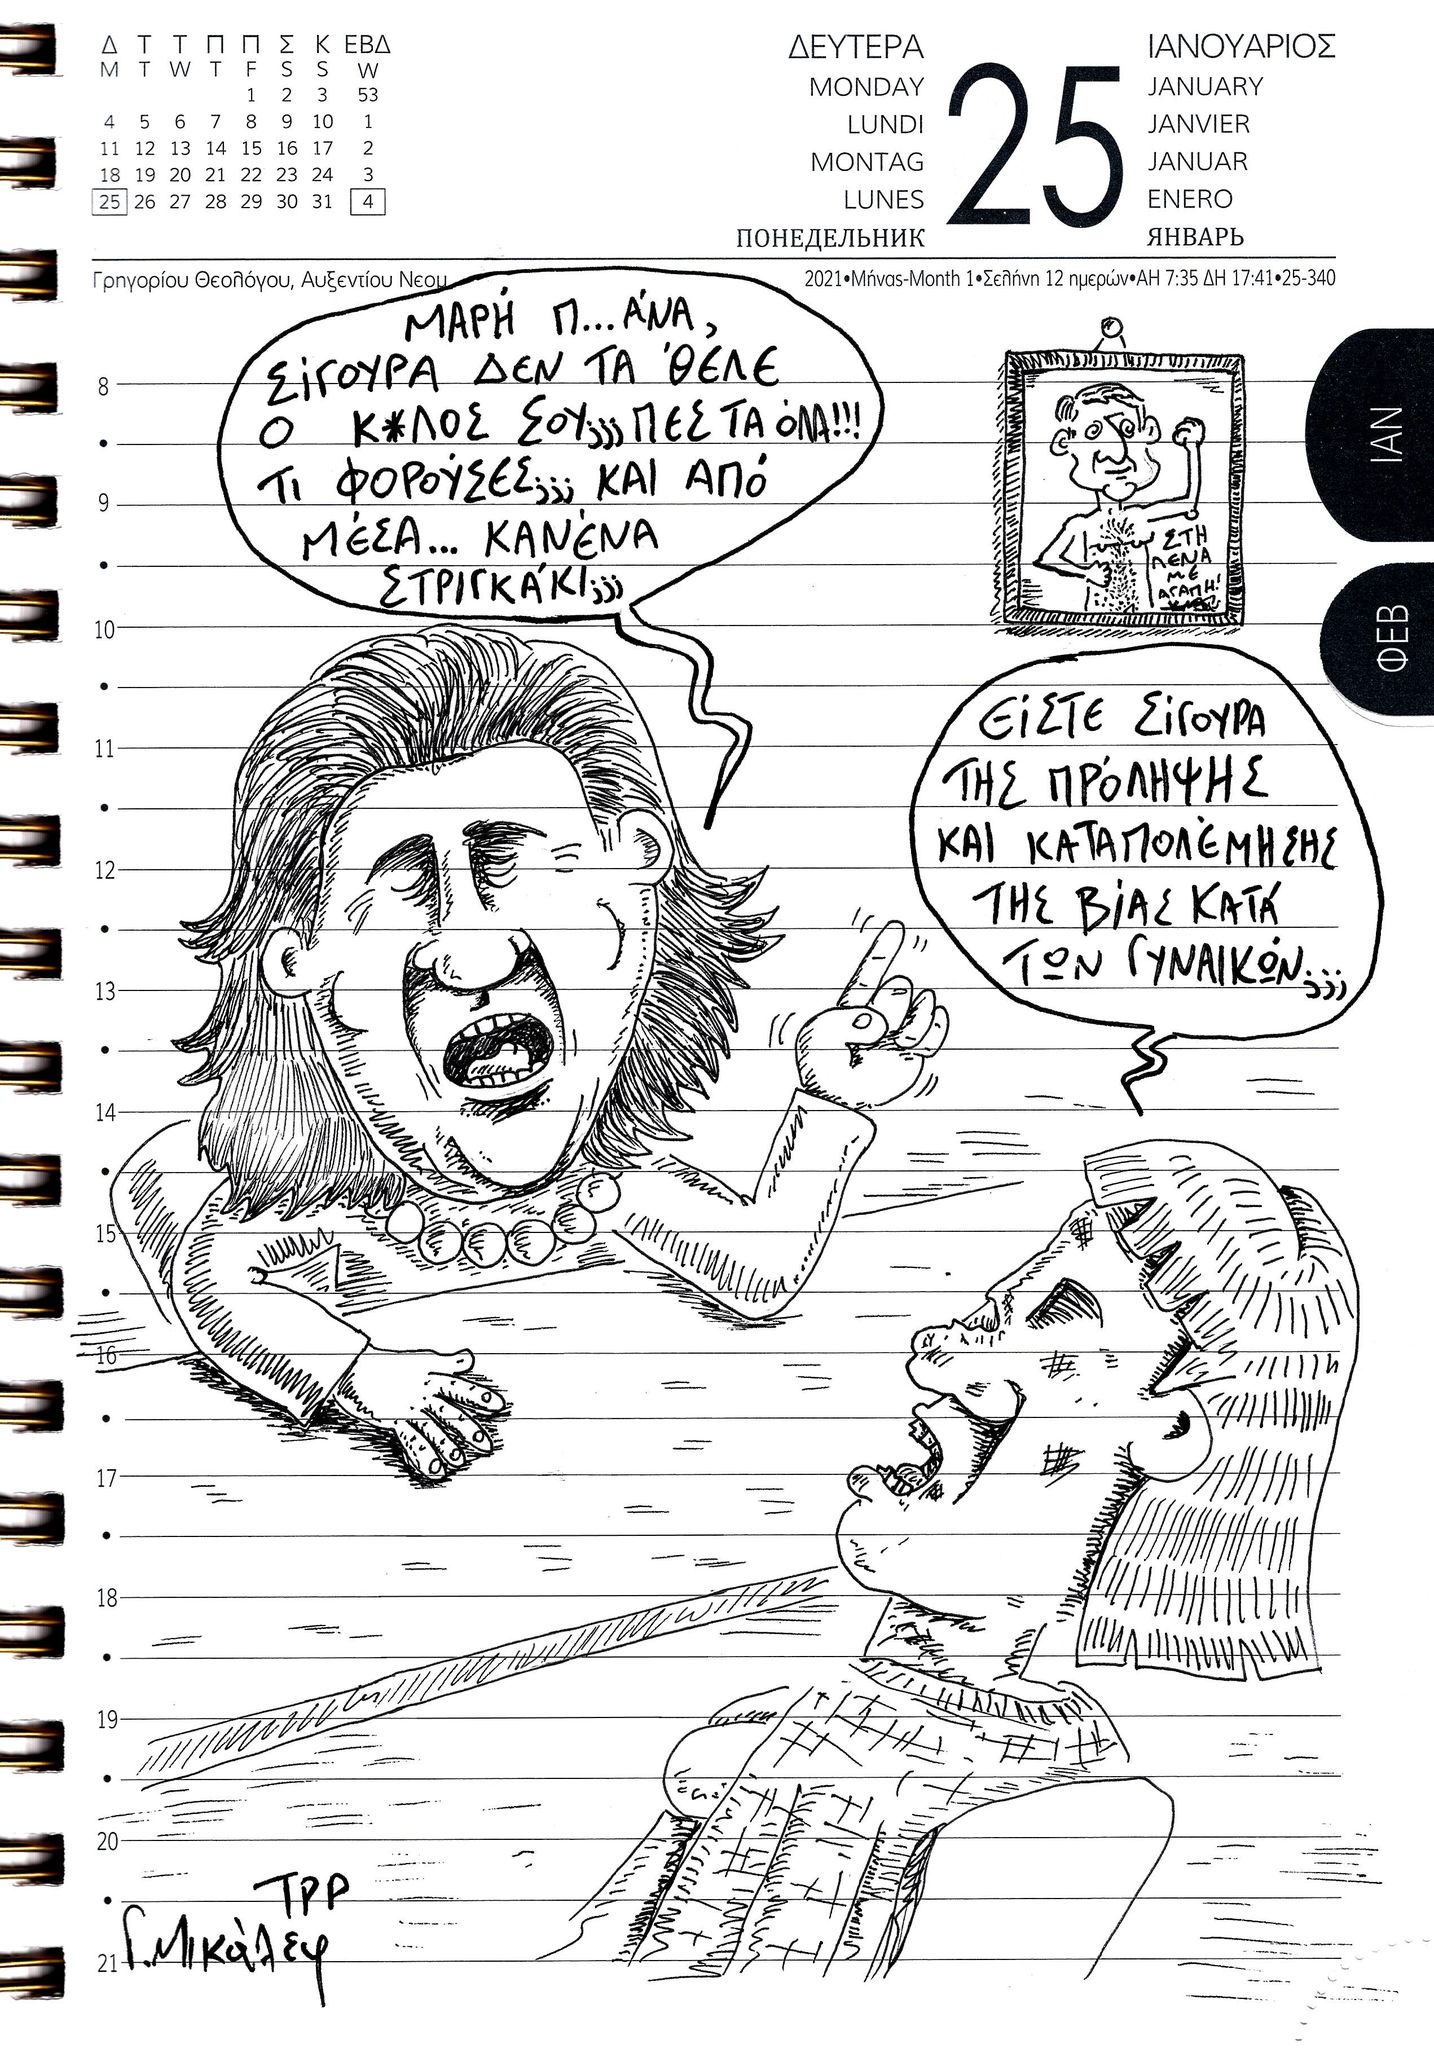 Δ Τ Τ Π Π Σ Κ ΕΒΔ
M T W T F S S W
1 2 3 53
4 5 6 7 8 9 10 1
11 12 13 14 15 16 17 2
18 19 20 21 22 23 24 3
25 26 27 28 29 30 31 4
ΔΕΥΤΕΡΑ
MONDAY
LUNDI
MONTAG
LUNES
ПОНЕДЕЛЬНИК
25
ΙΑΝΟΥΑΡΙΟΣ
JANUARY
JANVIER
JANUAR
ENERO
ЯНВАРЬ
Γρηγορίου Θεολόγου, Αυξεντίου Νεομ
2021•Μήνας-Month 1•Σελήνη 12 ημερών•ΑΗ 7:35 ΔΗ 17:41•25-340
ΜΑΡΗ Π...ΆΝΑ,
ΣΙΓΟΥΡΑ ΔΕΝ ΤΑ 'ΘΕΛΕ
Ο Κ*ΛΟΣ ΣΟΥ;;; ΠΕΣ ΤΑ ΌΛΑ!!!
ΤΙ ΦΟΡΟΎΣΕΣ;;; ΚΑΙ ΑΠΌ
ΜΈΣΑ... ΚΑΝΈΝΑ
ΣΤΡΙΓΚΆΚΙ;;;
ΣΤΗ
ΛΕΝΑ
ΜΕ
ΑΓΑΠΗ!
ΙΑΝ
ΦΕΒ
ΕΊΣΤΕ ΣΊΓΟΥΡΑ
ΤΗΣ ΠΡΌΛΗΨΗΣ
ΚΑΙ ΚΑΤΑΠΟΛΈΜΗΣΗΣ
ΤΗΣ ΒΊΑΣ ΚΑΤΆ
ΤΩΝ ΓΥΝΑΙΚΏΝ;;;
8
9
10
11
12
13
14
15
16
17
18
19
20
21
TPP
Γ. Μικάλεφ